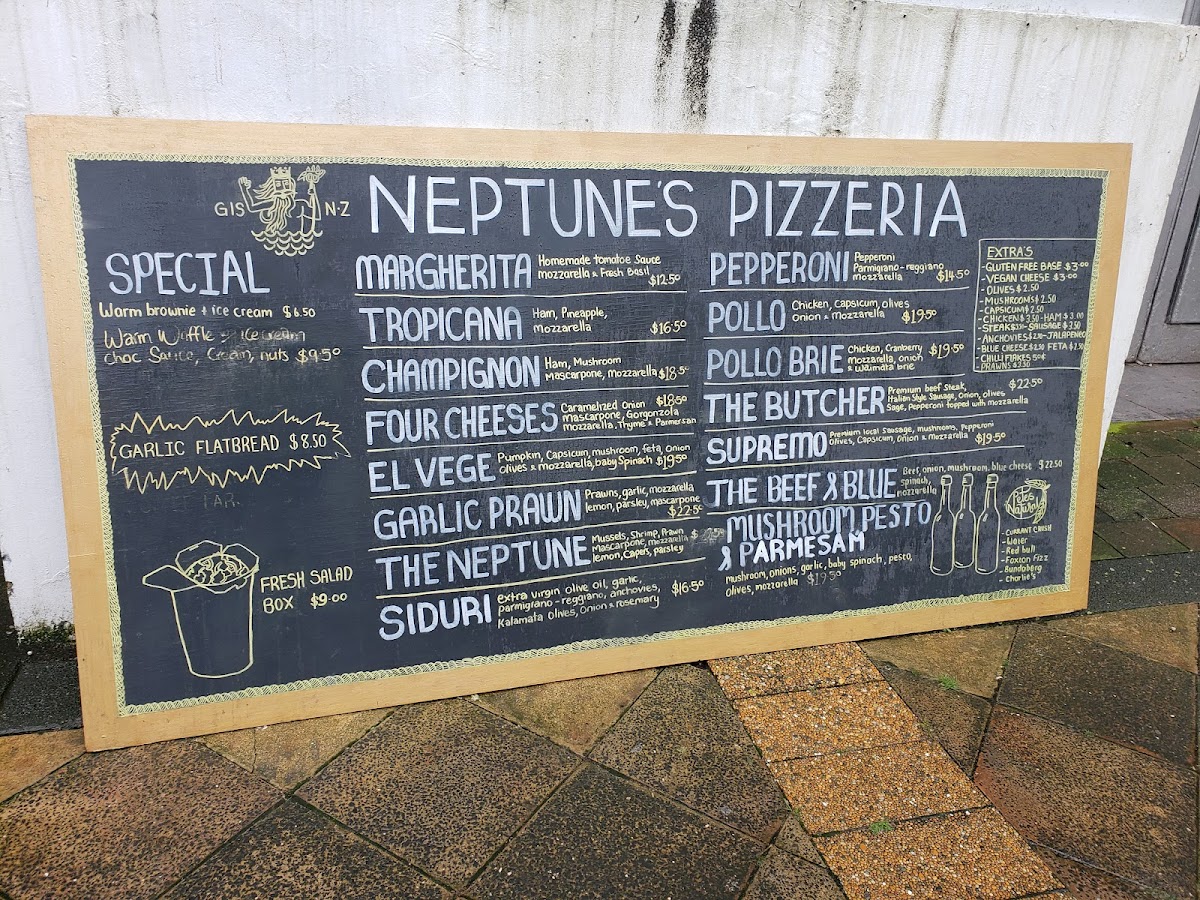 GIS N-Z
NEPTUNE'S PIZZERIA
SPECIAL
Warm brownie + ice cream $6.50
Warm Waffle + Ice cream
Choc Sauce, Cream, nuts $9.50
GARLIC FLATBREAD $8.50
FRESH SALAD
BOX $9.00
MARGHERITA
Homemade tomatoe Sauce
mozzarella & Fresh Basil
$12.50
TROPICANA
Ham, Pineapple,
mozzarella $16.50
CHAMPIGNON
Ham, Mushroom
Mascarpone, Mozzarella $18.50
FOUR CHEESES
Caramelized Onion $18.50
mascarpone, Gorgonzola
mozzarella, Thyme & Parmersan
EL VEGE
Pumpkin, Capsicum, mushroom, feta, Onion
Olives & mozzarella, baby Spinach $19.50
GARLIC PRAWN
Prawns, garlic, mozzarella
lemon, parsley, mascarpone
$22.50
THE NEPTUNE
Mussels, Shrimp, Prawn
Mascarpone, mozzarella $22.50
lemon, Capers, parsley
SIDURI
extra virgin olive oil, garlic,
parmigrano-reggiano, anchovies, $16.50
Kalamata Olives, Onion & rosemary
PEPPERONI
Pepperoni
Parmigrano-reggiano
mozzarella $14.50
POLLO
Chicken, Capsicum, olives
Onion & Mozzarella $19.50
POLLO BRIE
Chicken, Cranberry
Mozzarella, onion $19.50
& Waimata brie
THE BUTCHER
Premium beef Steak, $22.50
Italian Style Sausage, Onion, olives
Sage, Pepperoni topped with mozzarella
SUPREMO
Premium local Sausage, mushrooms, Pepperoni
Olives, Capsicum, Onion & Mozzarella $19.50
THE BEEF & BLUE
Beef, onion, mushroom, blue cheese $22.50
spinach,
mozzarella
MUSHROOM, PESTO
& PARMESAM
mushroom, onions, garlic, baby spinach, pesto,
Olives, mozzarella $19.50
EXTRA'S
-GLUTEN FREE BASE $3.00
-VEGAN CHEESE $3.00
-OLIVES $2.50
-MUSHROOMS $2.50
-CAPSICUM $2.50
-CHICKEN $3.50 -HAM $3.00
-STEAK $3.50 -SAUSAGE $3.50
-ANCHOVIES $2.50 -JALAPENEO
-BLUE CHEESE $2.50 FETA $2.50
-CHILLI FLAKES 50¢
-PRAWNS $3.50
Pete's
Natural
- CURRANT CRUSH
- Water
- Red bull
- Foxton Fizz
- Bundaberg
- Charlie's